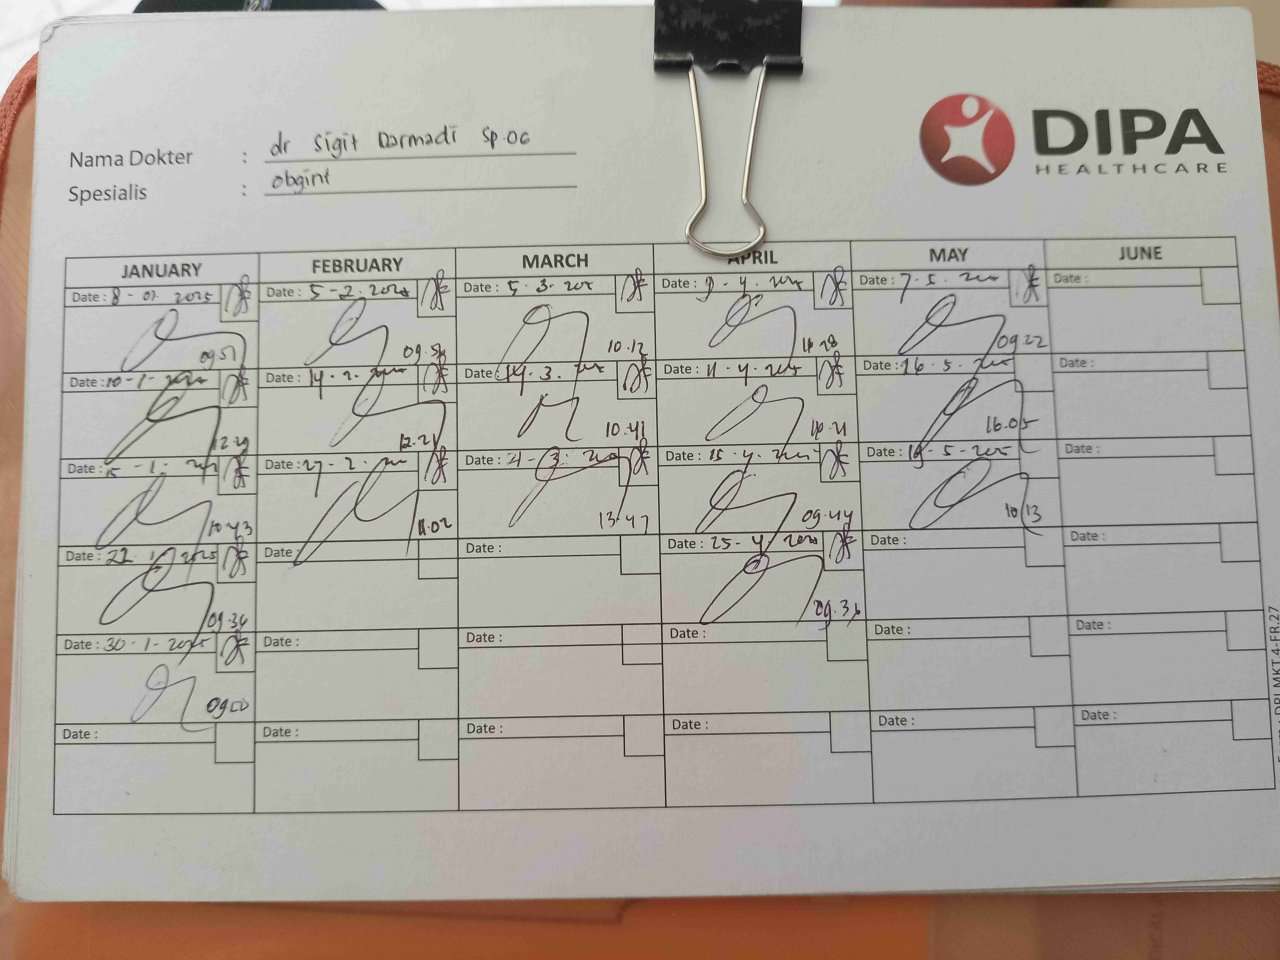 DIPA
HEALTHCARE
Nama Dokter : dr Sigit Darmadi Sp.OG
Spesialis : obgint
JANUARY FEBRUARY MARCH APRIL MAY JUNE
Date : 8-01 2025 Date : 5-2-2025 Date : 5.3.2025 Date : 9-4-2025 Date : 7.5.2025 Date :
09.51 09.54 10.12 09.22
Date : 10-1-2025 Date : 14-2-2025 Date : 14.3. Date : 11-4-2025 Date : 16.5.2025 Date :
12.29 12.21 10.41 16.05
Date : 15-1- Date : 27-2- Date : Date : 15-4-2025 Date : 19-5-2025 Date :
10.43 11.02 13.47 09.44 10.13
Date : 22.1.2025 Date : Date : Date : 25-4-2025 Date : Date :
09.36 09.36
Date : 30-1-2025 Date : Date : Date : Date : Date :
09.00
Date : Date : Date : Date : Date : Date :